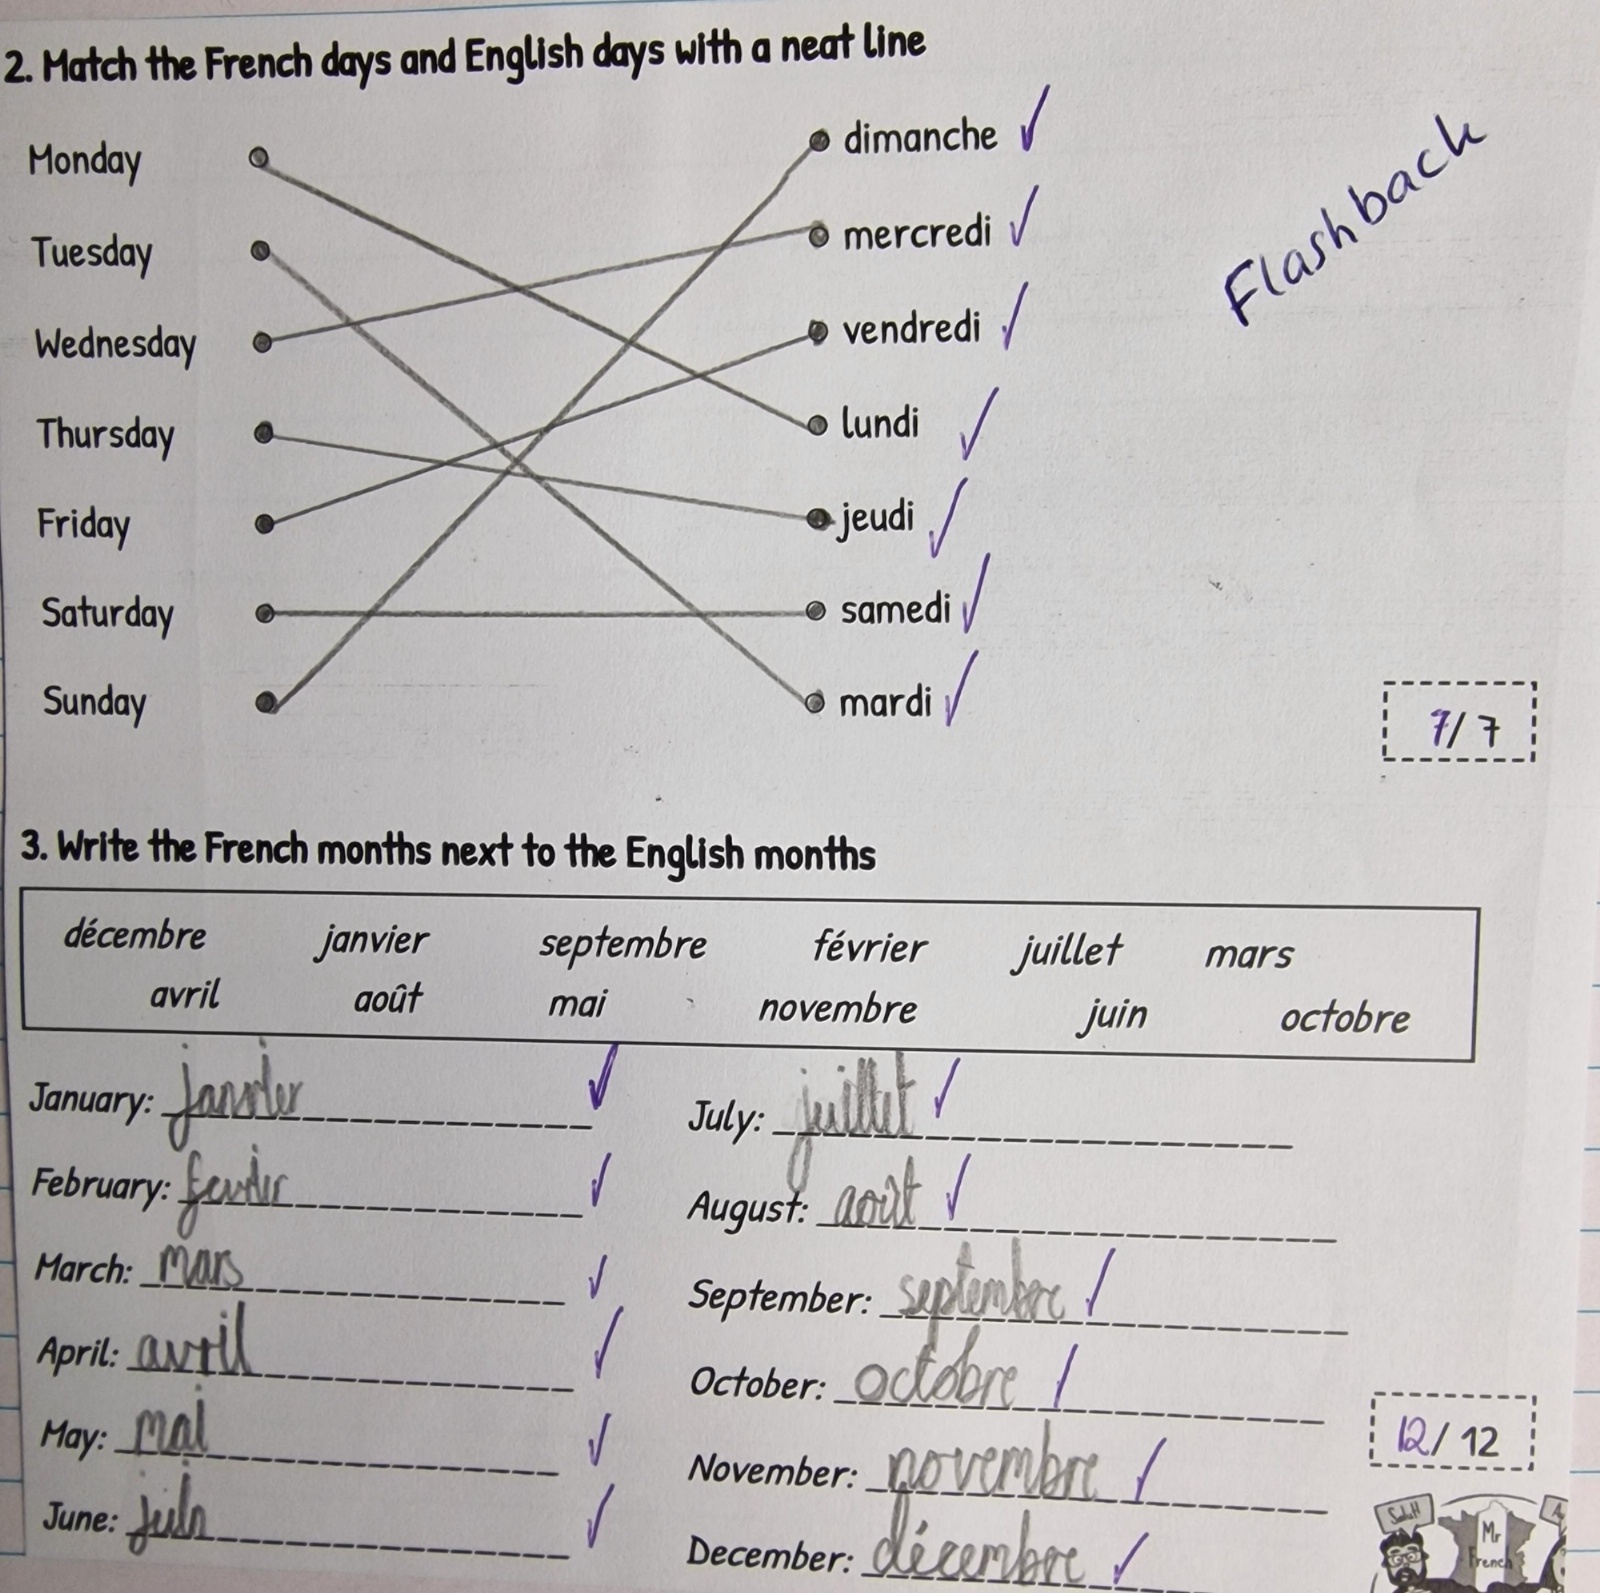 2. Match the French days and English days with a neat line
Monday dimanche
Tuesday mercredi
Wednesday vendredi
Thursday lundi
Friday jeudi
Saturday samedi
Sunday mardi
Flashback
7/7
3. Write the French months next to the English months
décembre janvier septembre février juillet mars
avril août mai novembre juin octobre
January: janvier
February: fevrier
March: mars
April: avril
May: mai
June: juin
July: juillet
August: août
September: septembre
October: octobre
November: novembre
December: décembre
12/12
Salut!
Mr
French